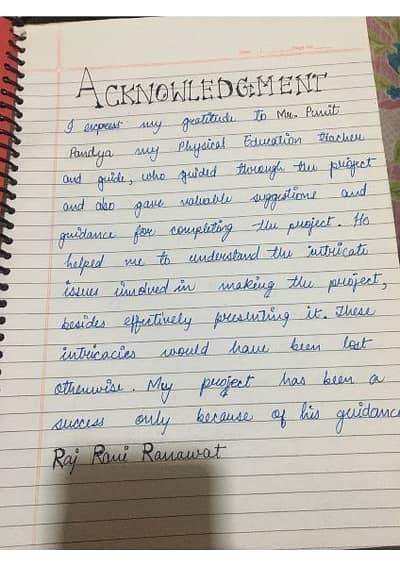 ACKNOWLEDGMENT
I express my gratitude to Mr. Punit
Pandya my Physical Education teacher
and guide, who guided through the project
and also gave valuable suggestions and
guidance for completing the project. He
helped me to understand the intricate
issues involved in making the project,
besides effectively presenting it. These
intricacies would have been lost
otherwise. My project has been a
success only because of his guidance
Raj Rani Ranawat